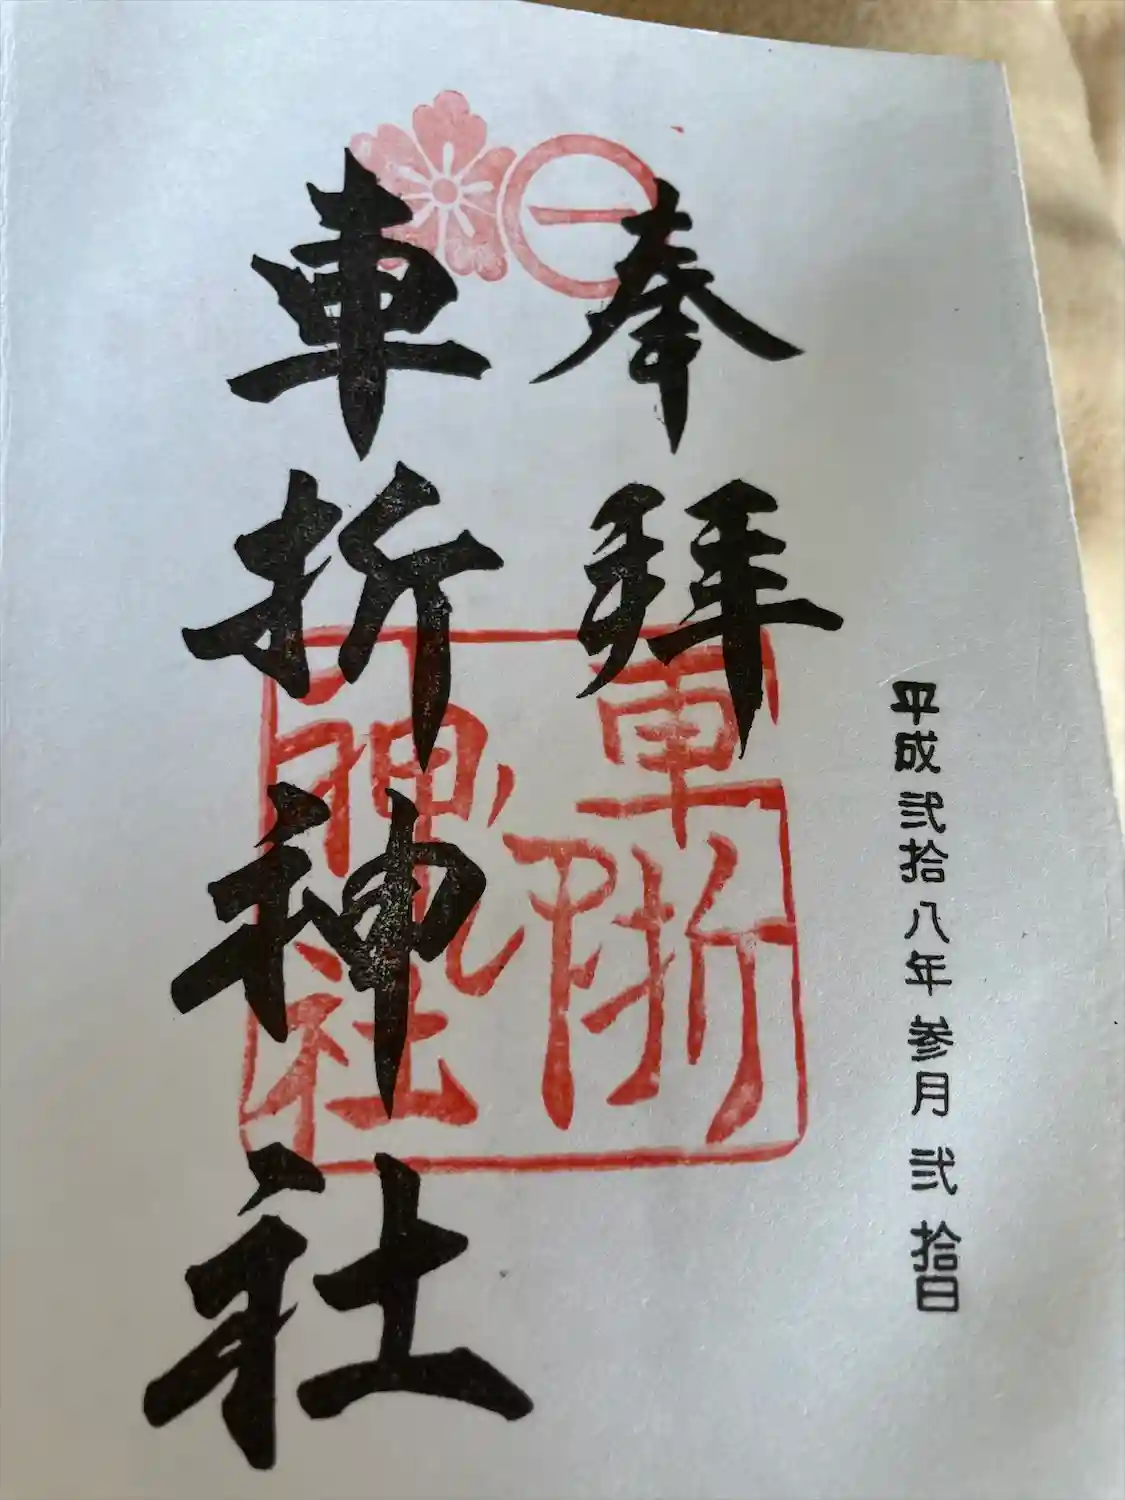 平成弐拾八年参月弐拾日
奉拝
車折神社
一
車折
神社